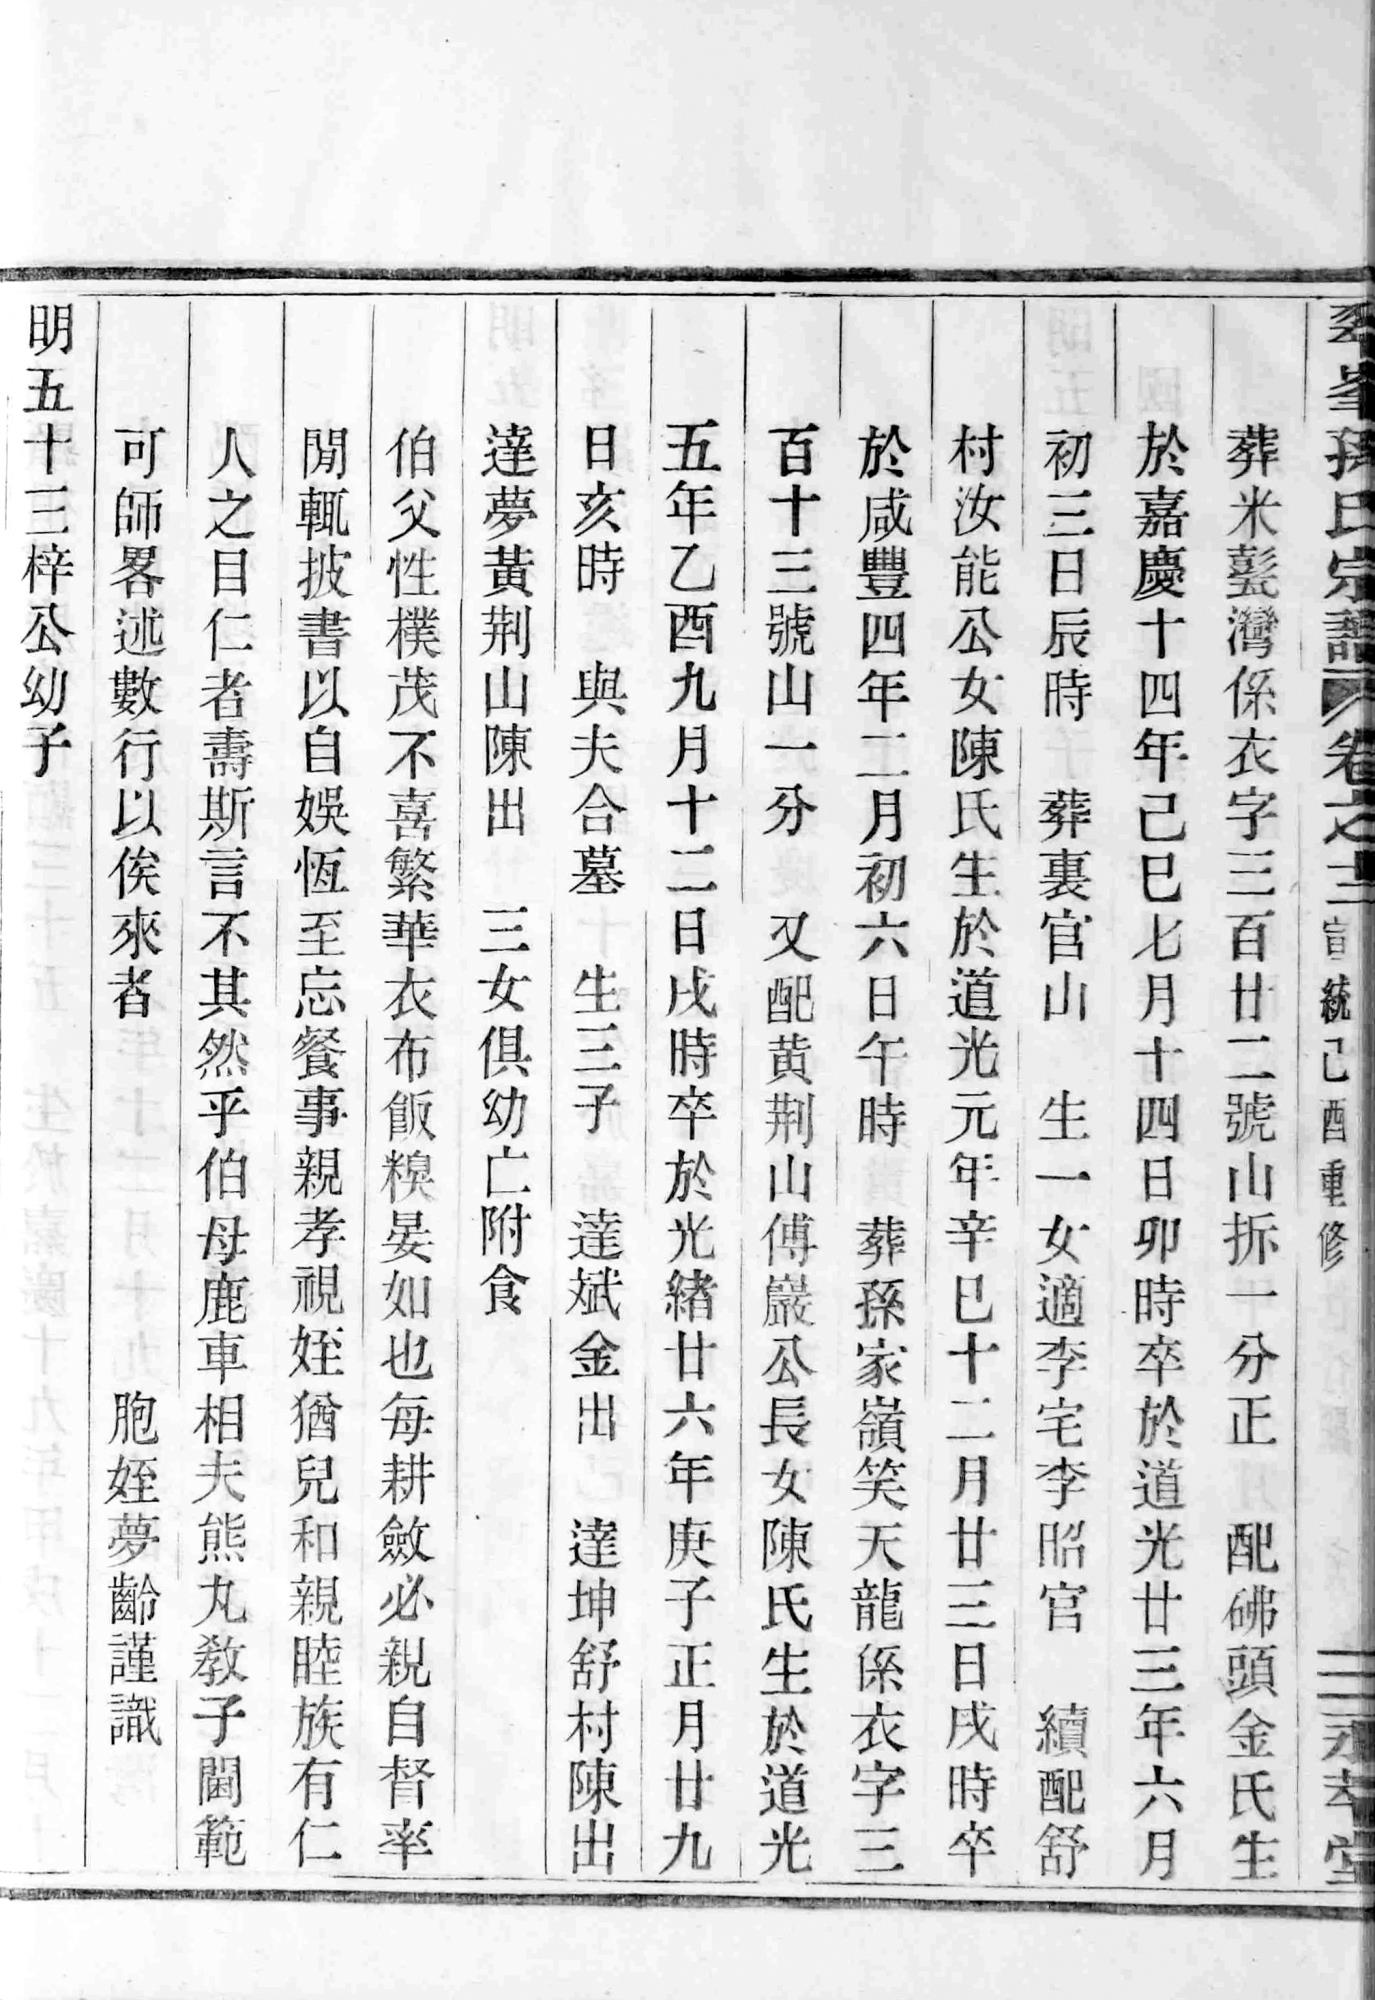 峯孫氏宗譜 卷之十二 宣統己酉重修 三 永孝堂
葬米甏灣係衣字三百廿二號山拆一分正 配砩頭金氏生
於嘉慶十四年己巳七月十四日卯時卒於道光廿三年六月
初三日辰時 葬裏官山 生一女適李宅李昭官 續配舒
村汝能公女陳氏生於道光元年辛巳十二月廿三日戌時卒
於咸豐四年二月初六日午時 葬孫家嶺笑天龍係衣字三
百十三號山一分 又配黄荆山傅巖公長女陳氏生於道光
五年乙酉九月十二日戌時卒於光緒廿六年庚子正月廿九
日亥時 與夫合墓 生三子 達斌金出 達坤舒村陳出
達夢黄荆山陳出 三女俱幼亡附食
伯父性樸茂不喜繁華衣布飯糗晏如也每耕斂必親自督率
閒輒披書以自娛恆至忘餐事親孝視姪猶兒和親睦族有仁
人之目仁者壽斯言不其然乎伯母鹿車相夫熊丸教子閫範
可師畧述數行以俟來者 胞姪夢齡謹識
明五十三梓公幼子